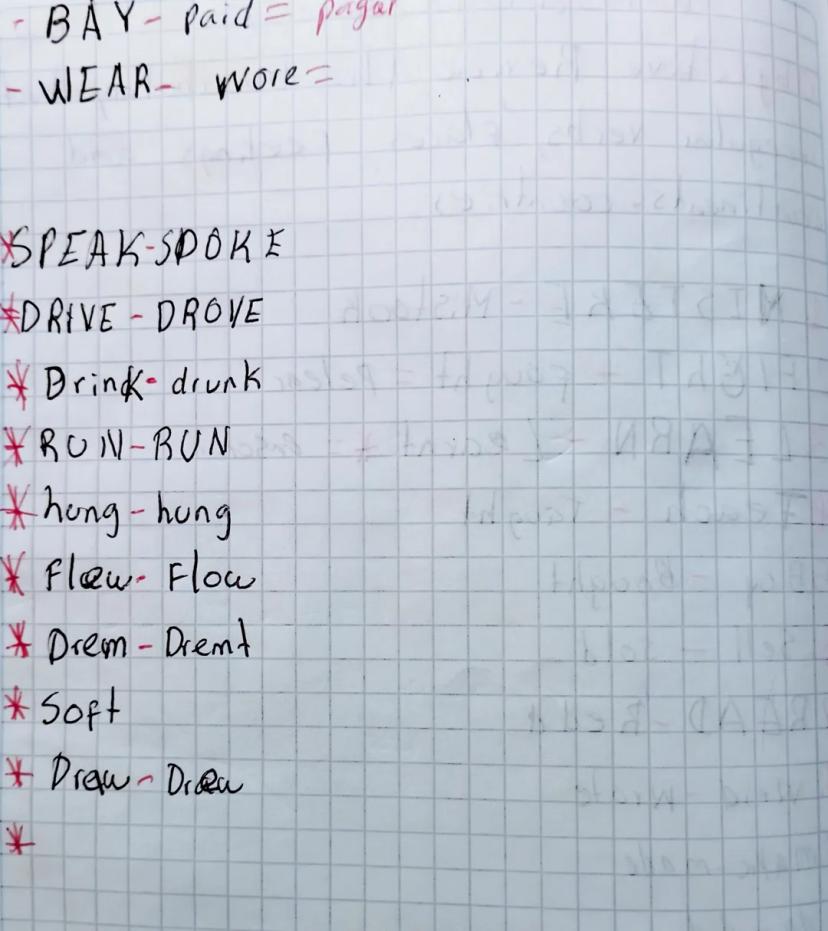 - BAY - paid = pagar
- WEAR - wore =
* SPEAK - SPOKE
* DRIVE - DROVE
* Drink - drunk
* RUN - RUN
* hung - hung
* Flew - Flow
* Drem - Dremt
* Soft
* Drew - Drew
*